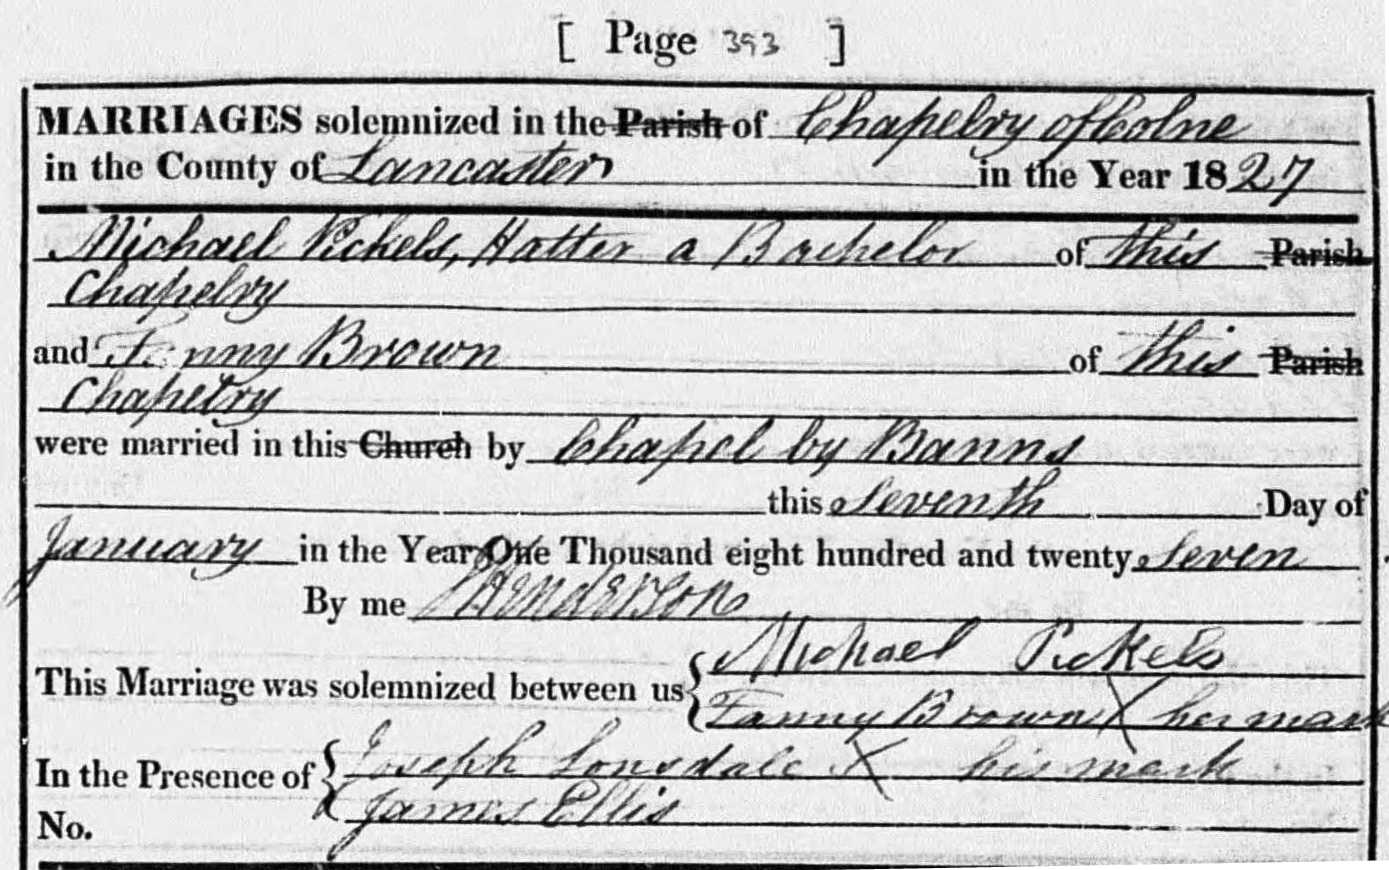 [ Page 393 ]
MARRIAGES solemnized in the Parish of Chapelry of Colne
in the County of Lancaster in the Year 1827
Michael Pickels, Hatter a Bachelor of this Parish
Chapelry
and Fanny Brown of this Parish
Chapelry
were married in this Church by Chapel by Banns
this seventh Day of
January in the Year One Thousand eight hundred and twenty seven
By me Henderson
Michael Pickels
This Marriage was solemnized between us
Fanny Brown X her mark
Joseph Lonsdale X his mark
In the Presence of
James Ellis
No.